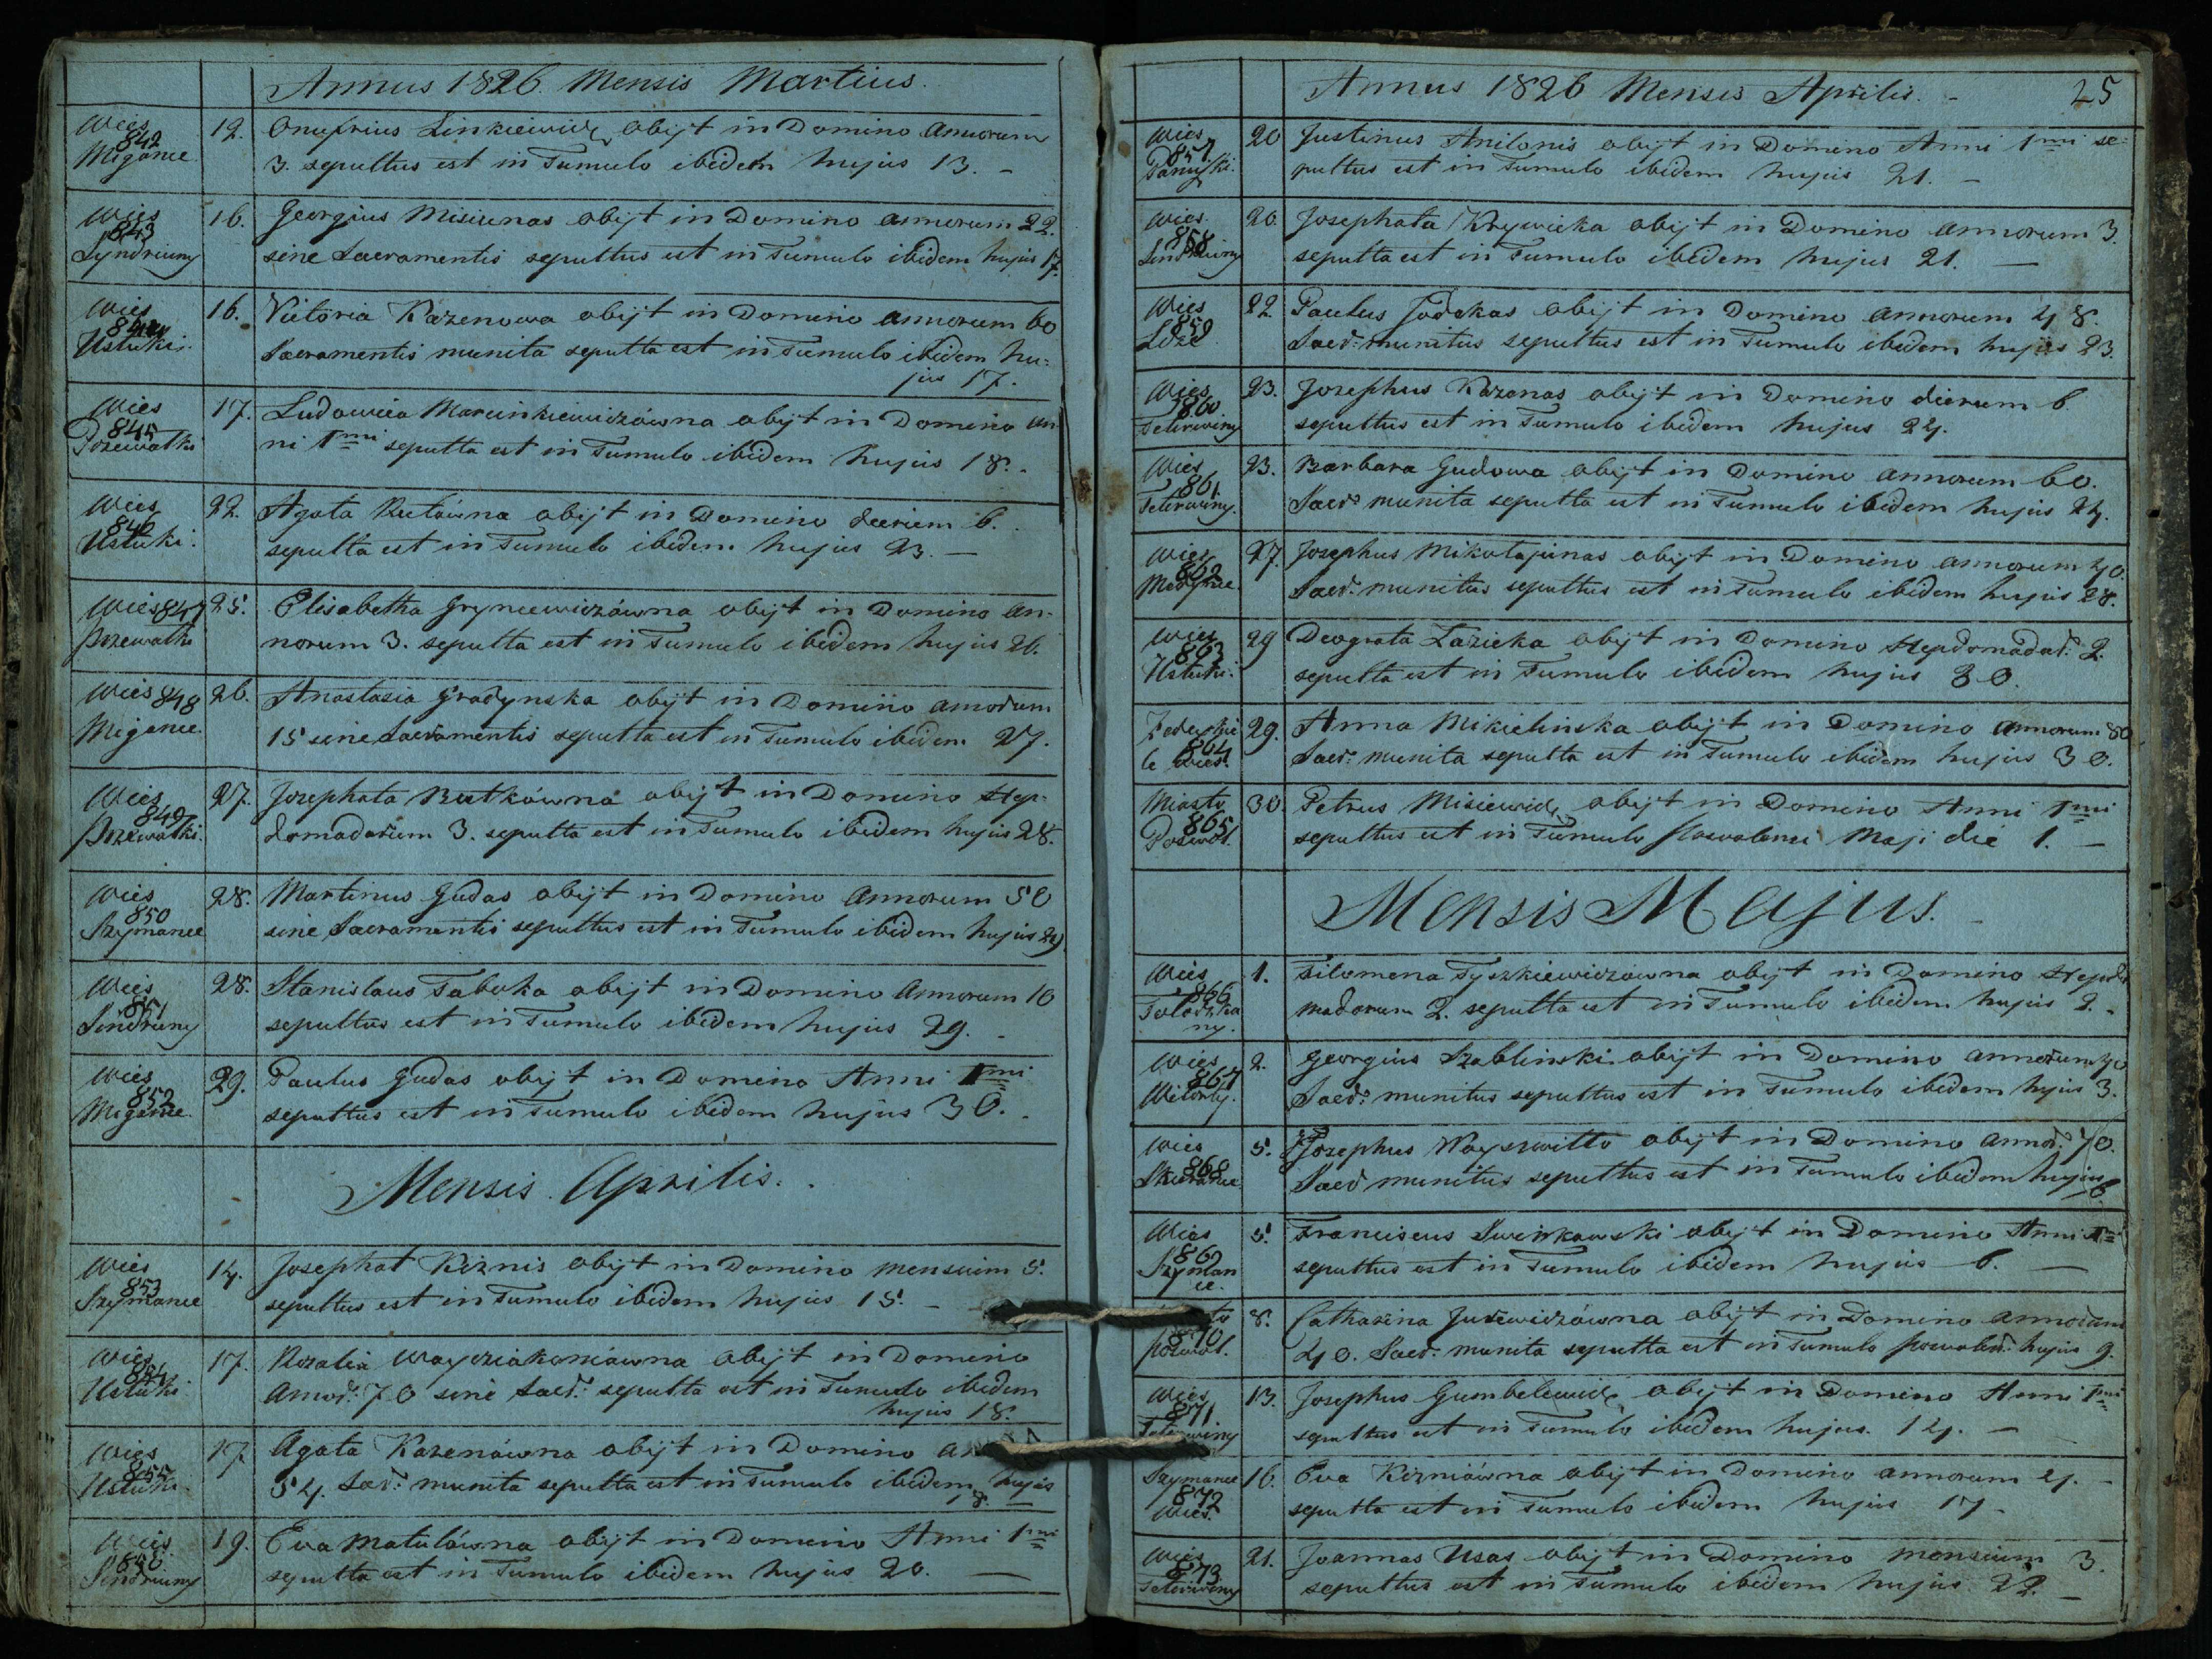 Annus 1826. Mensis Martius.
Wieś 842 Migańce 12. Onufrius Linkiewicz obijt in Domino annorum
3. sepultus est in Tumulo ibidem hujus 13. -
Wieś 843 Syndriuny 16. Georgius Misiunas obijt in Domino annorum 22.
sine Sacramentis sepultus est in Tumulo ibidem hujus 17.
Wieś 844 Ustuki. 16. Victoria Kazenowa obijt in Domino annorum 60
Sacramentis munita sepulta est in Tumulo ibidem hu-
jus 17.
Wieś 845 Pozewałki 17. Ludowica Marcinkiewiczówna obijt in Domino an
ni 1mi sepulta est in Tumulo ibidem hujus 18. -
Wieś 846 Ustuki. 22. Agata Rutówna obijt in Domino dierum 6.
sepulta est in Tumulo ibidem hujus 23. —
Wieś 847 Pozewałki 25. Elisabetha Gryncewiczówna obijt in Domino an-
norum 3. sepulta est in Tumulo ibidem hujus 26.
Wieś 848 Migańce. 26. Anastasia Gradynska obijt in Domino annorum
15 sine Sacramentis sepulta est in Tumulo ibidem 27.
Wieś 849 Pozewałki. 27. Josephata Rutkówna obijt in Domino Hep-
domadarum 3. sepulta est in Tumulo ibidem hujus 28.
Wieś 850 Szymańce 28. Martinus Gudas obijt in Domino annorum 50
sine Sacramentis sepultus est in Tumulo ibidem hujus 29
Wieś 851 Sindriuny 28. Stanislaus Taboka obijt in Domino annorum 10
sepultus est in Tumulo ibidem hujus 29. -
Wieś 852 Migańce 29. Paulus Gudas obijt in Domino Anni 1mi
sepultus est in Tumulo ibidem hujus 30. -
Mensis Aprilis.
Wieś 853 Szymańce 14. Josephat Kiznis obijt in Domino mensium 5.
sepultus est in Tumulo ibidem hujus 15. -
Wieś 854 Ustuki 17. Rozalia Woyciakoniówna obijt in Domino
Annor: 70 sine Sacr: sepulta est in Tumulo ibidem
hujus 18.
Wieś 855 Ustuki 17. Agata Kazenówna obijt in Domino
54. Sacr: munita sepulta est in Tumulo ibidem hujus
18. —
Wieś 856 Sindriuny 19. Eva Matulówna obijt in Domino Anni 1mi
sepulta est in Tumulo ibidem hujus 20. —
Annus 1826 Mensis Aprilis. - 25
Wieś 857. 20 Justinus Anilonis obijt in Domino Anni 1mi se-
pultus est in Tumulo ibidem hujus 21. —
Wieś 858 Sindriuny 20. Josephata Krywicka obijt in Domino annorum 3.
sepulta est in Tumulo ibidem hujus 21. —
Wieś 859 22 Paulus Jodokas obijt in Domino annorum 48.
Sacr: munitus sepultus est in Tumulo ibidem hujus 23.
Wieś 860. Teterwiny 23. Josephus Kazenas obijt in Domino dierum 6.
sepultus est in Tumulo ibidem hujus 24.
Wieś 861. Teterwiny. 23. Barbara Gudowa obijt in Domino annorum 60.
Sacr: munita sepulta est in Tumulo ibidem hujus 24.
Wieś 862 27. Josephus Mikołajunas obijt in Domino annorum 40.
Sacr: munitus sepultus est in Tumulo ibidem hujus 28.
Wieś 863 Ustuki. 29 Deograta Łazicka obijt in Domino Hepdomadar: 2.
sepulta est in Tumulo ibidem hujus 30.
864 Wieś. 29. Anna Mikielinska obijt in Domino annorum 80
Sacr: munita sepulta est in Tumulo ibidem hujus 30.
Miasto 865 Poswol. 30. Petrus Misiewicz obijt in Domino Anni 1mi
sepultus est in Tumulo Poswolensi Maji die 1. —
Mensis Majus. -
Wieś 866 1. Filomena Tyszkiewiczówna obijt in Domino Hepdo
madarum 2. sepulta est in Tumulo ibidem hujus 2. -
Wieś 867 2. Georgius Szablinski obijt in Domino annorum 40
Sacr: munitus sepultus est in Tumulo ibidem hujus 3.
Wieś 868 5. Josephus Woyszwiłło obijt in Domino annor: 70.
Sacr munitus sepultus est in Tumulo ibidem hujus 6.
Wieś 869 Szymańce. 5. Franciscus Swirskowski obijt in Domino Anni 1mi
sepultus est in Tumulo ibidem hujus 6. —
870 Poswol. 8. Catharina Jurewiczówna obijt in Domino annorum
40. Sacr: munita sepulta est in Tumulo Poswolen: hujus 9.
Wieś 871. Teterwiny 13. Josephus Gumbelewicz obijt in Domino Anni 1mi
sepultus est in Tumulo ibidem hujus. 14. —
Szymańce 872 Wieś. 16. Eva Kizniówna obijt in Domino annorum 4. -
sepulta est in Tumulo ibidem hujus 17
Wieś 873 Teterwiny 21. Joannas Usas obijt in Domino mensium 3.
sepultus est in Tumulo ibidem hujus 22. —